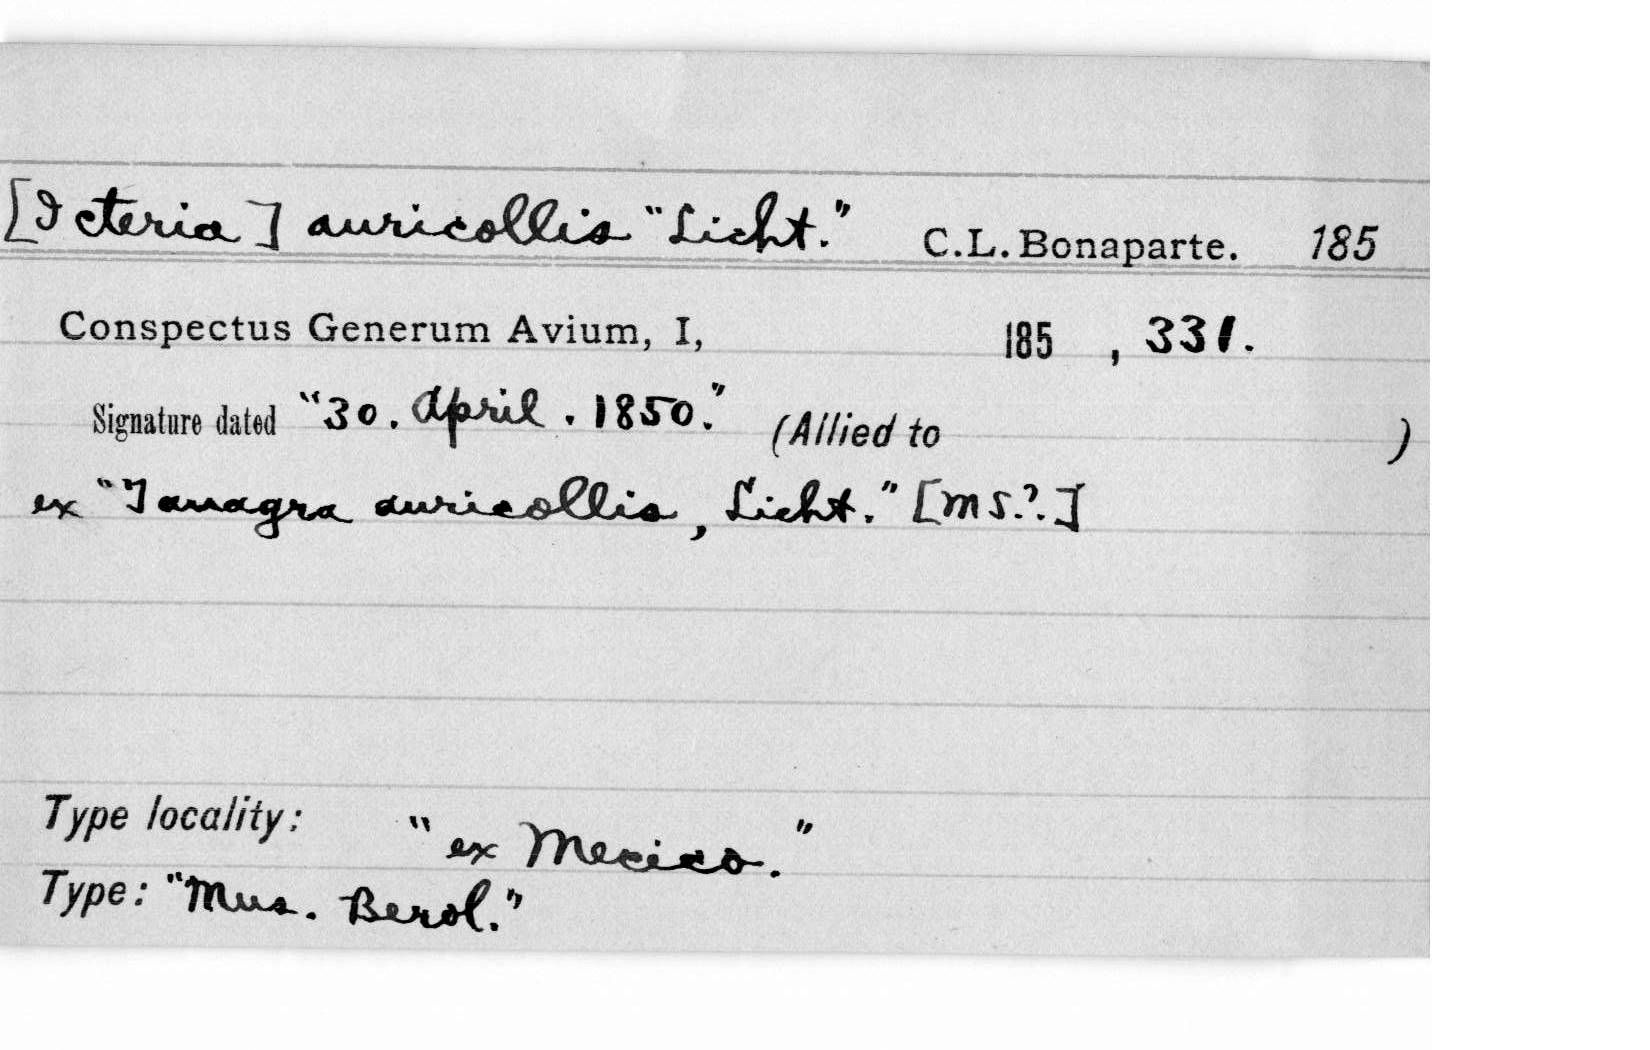 [Icteria] auricollis "Licht." C.L. Bonaparte. 185
Conspectus Generum Avium, I, 185 , 331.
Signature dated "30. April. 1850." (Allied to )
ex "Tanagra auricollis, Licht." [MS.?.]
Type locality: "ex Mexico."
Type: "Mus. Berol."